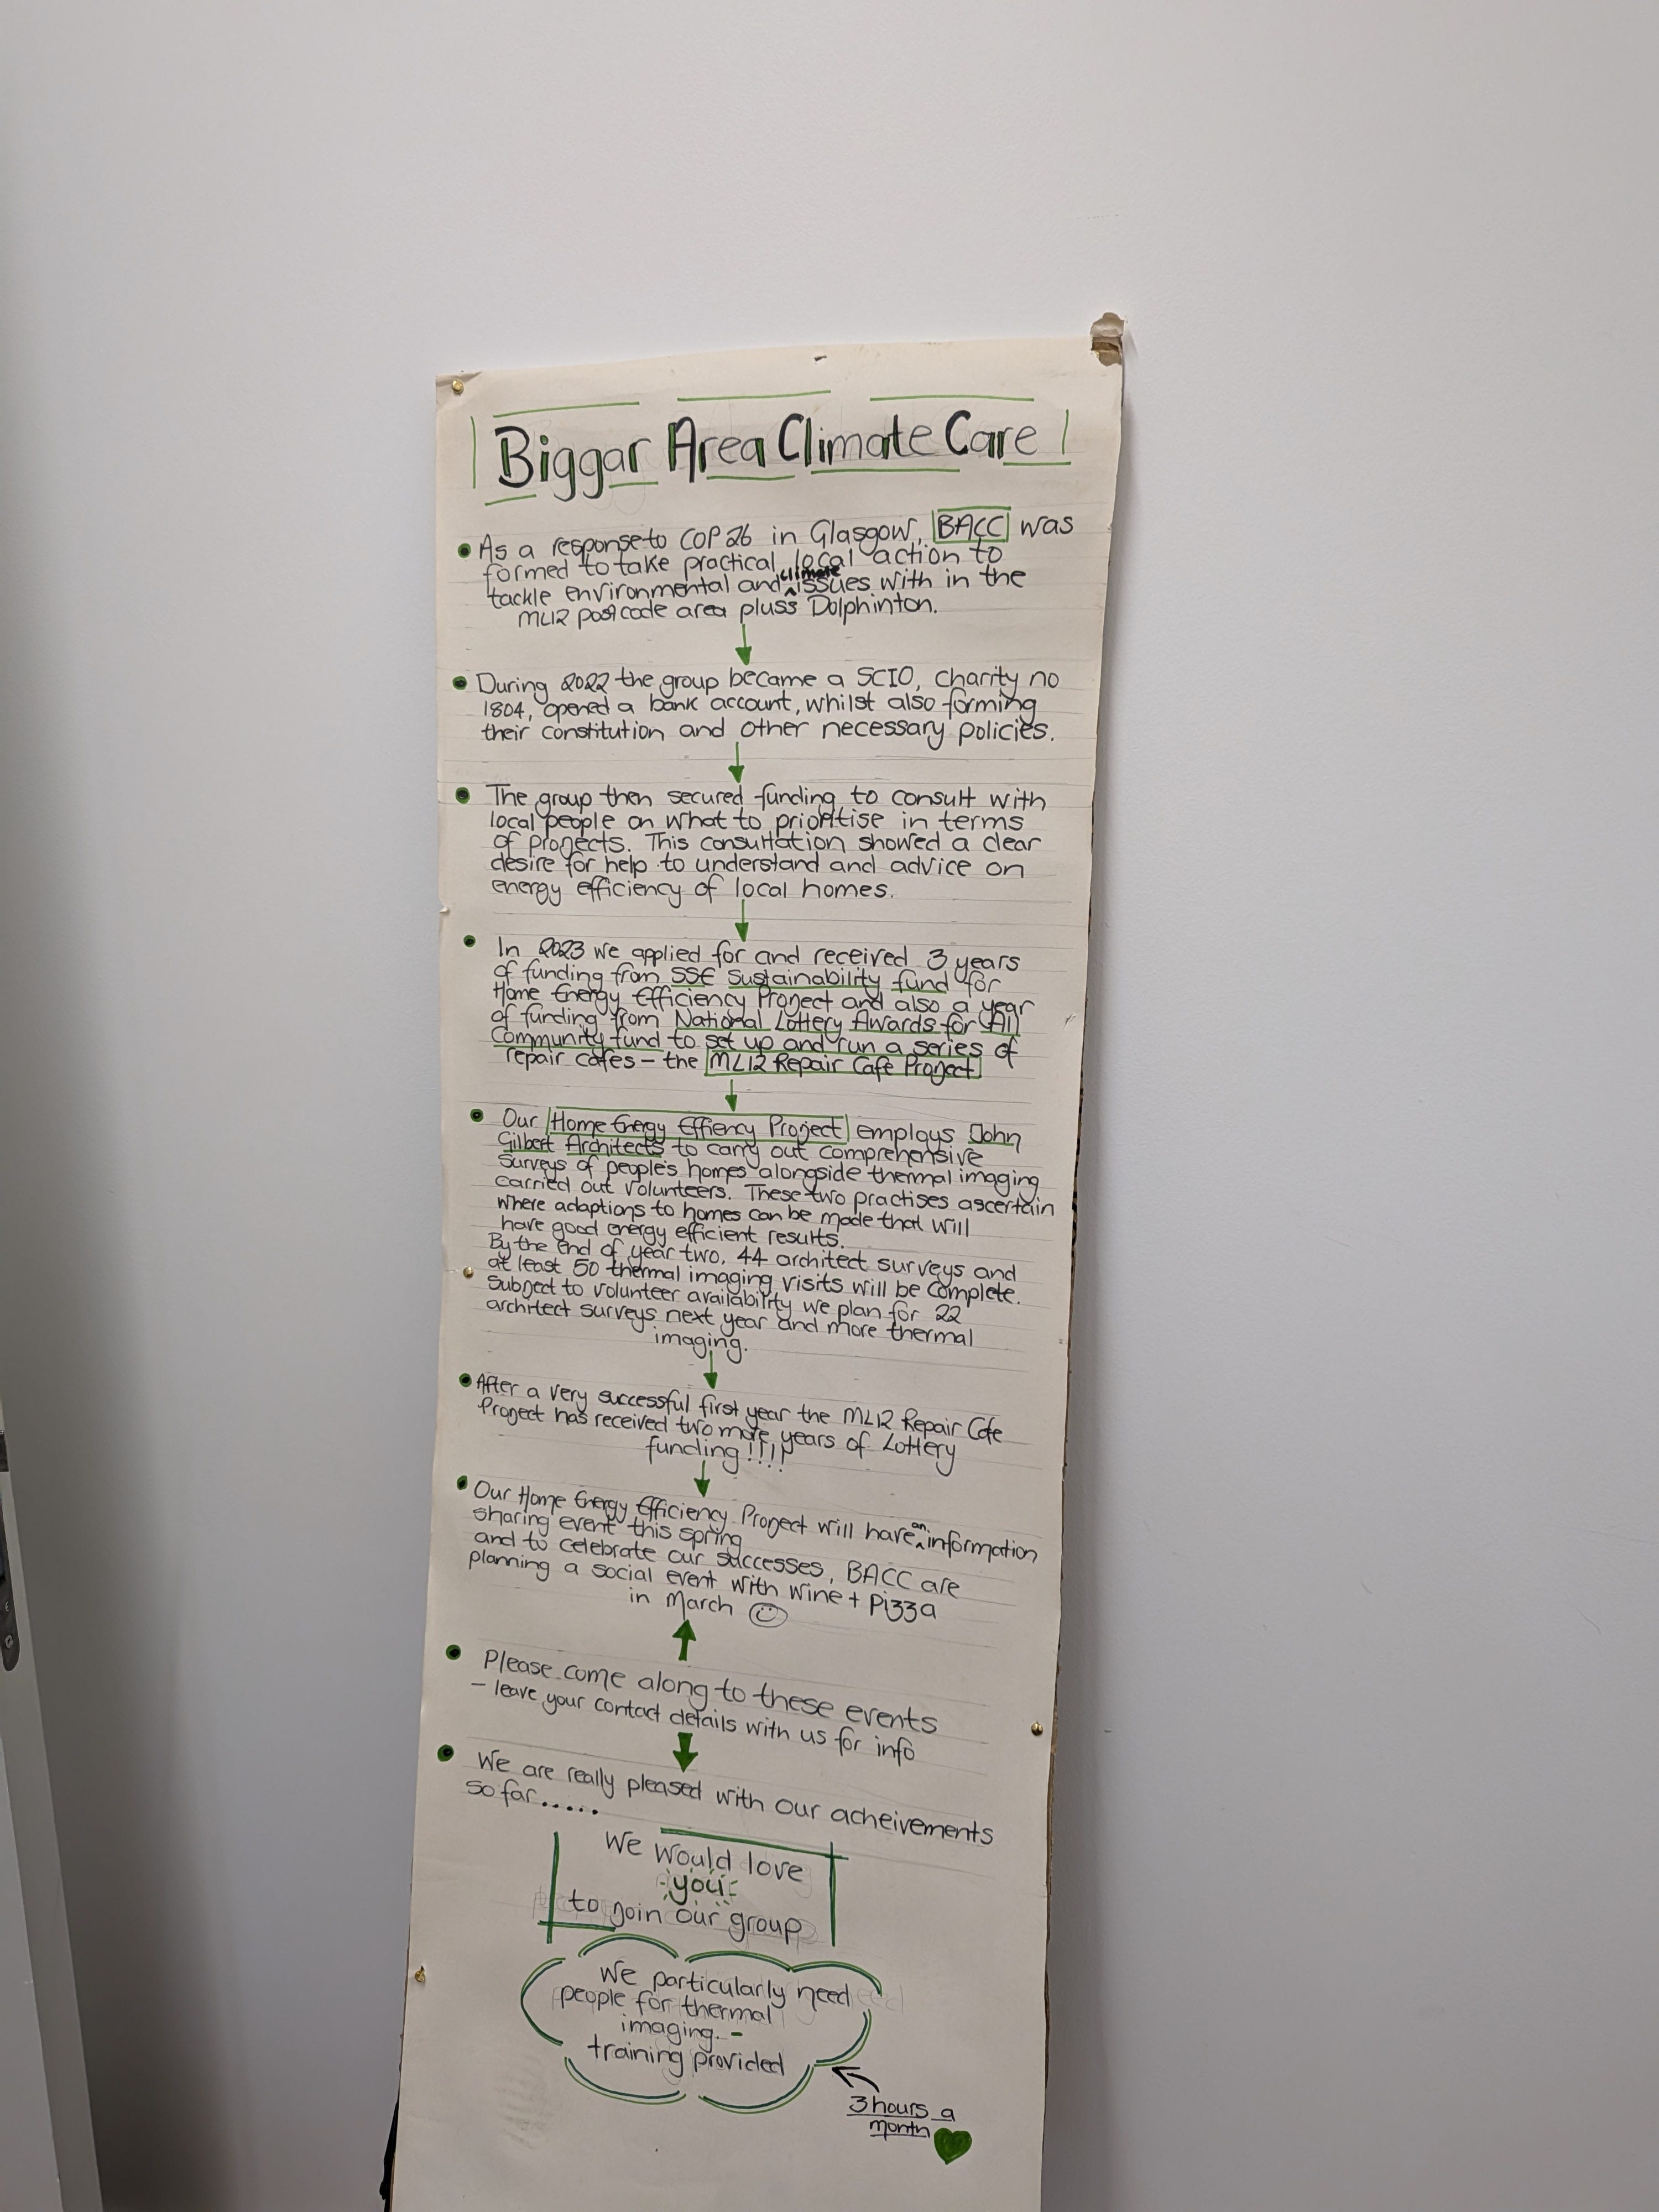 Biggar Area Climate Care
• As a response to COP 26 in Glasgow, BACC was
formed to take practical local action to
tackle environmental and climate issues with in the
ML12 postcode area pluss Dolphinton.
• During 2022 the group became a SCIO, charity no
1804, opened a bank account, whilst also forming
their constitution and other necessary policies.
• The group then secured funding to consult with
local people on what to prioritise in terms
of projects. This consultation showed a clear
desire for help to understand and advice on
energy efficiency of local homes.
• In 2023 we applied for and received 3 years
of funding from SSE Sustainability fund for
Home Energy Efficiency Project and also a year
of funding from National Lottery Awards for All
Community fund to set up and run a series of
repair cafes – the ML12 Repair Cafe Project
• Our Home Energy Effiency Project employs John
Gilbert Architects to carry out comprehensive
surveys of people's homes alongside thermal imaging
carried out volunteers. These two practises ascertain
where adaptions to homes can be made that will
have good energy efficient results.
By the end of year two, 44 architect surveys and
at least 50 thermal imaging visits will be complete.
Subject to volunteer availability we plan for 22
architect surveys next year and more thermal
imaging.
• After a very successful first year the ML12 Repair Cafe
Project has received two more years of Lottery
funding!!!!
• Our Home Energy Efficiency Project will have an information
sharing event this spring
and to celebrate our successes, BACC are
planning a social event with wine + pizza
in March ☺
• Please come along to these events
– leave your contact details with us for info
• We are really pleased with our acheivements
so far.....
We would love
you
to join our group
We particularly need
people for thermal
imaging. –
training provided
3 hours a
month